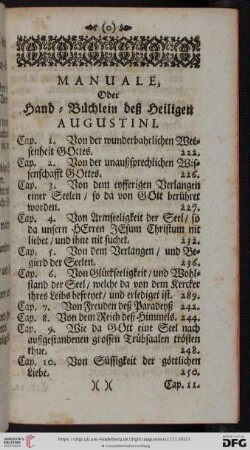 (o)
MANUALE,
Oder
Hand-Büchlein deß Heiligen
AUGUSTINI.
Cap. 1. Von der wunderbahrlichen Wei-
senheit GOttes. 221.
Cap. 2. Von der unaußsprechlichen Wis-
senschafft GOttes. 226.
Cap. 3. Von dem eyfferigen Verlangen
einer Seelen / so da von GOtt berühret
worden. 227.
Cap. 4. Von Armseligkeit der Seel / so
da unsern HErren JEsum Christum nit
liebet / und ihne nit suchet. 232.
Cap. 5. Von dem Verlangen / und Be-
gierd der Seelen. 236.
Cap. 6. Von Glückseeligkeit / und Wohl-
stand der Seel / welche da von dem Kercker
ihres Leibs befreyet / und erlediget ist. 289.
Cap. 7. Von Freuden deß Paradeyß 241.
Cap. 8. Von dem Reich deß Himmels. 244.
Cap. 9. Wie da GOtt eine Seel nach
außgestandenen grossen Trübsaalen trösten
thue. 248.
Cap. 10. Von Süssigkeit der göttlichen
Liebe. 250.
)( )( Cap. 11.